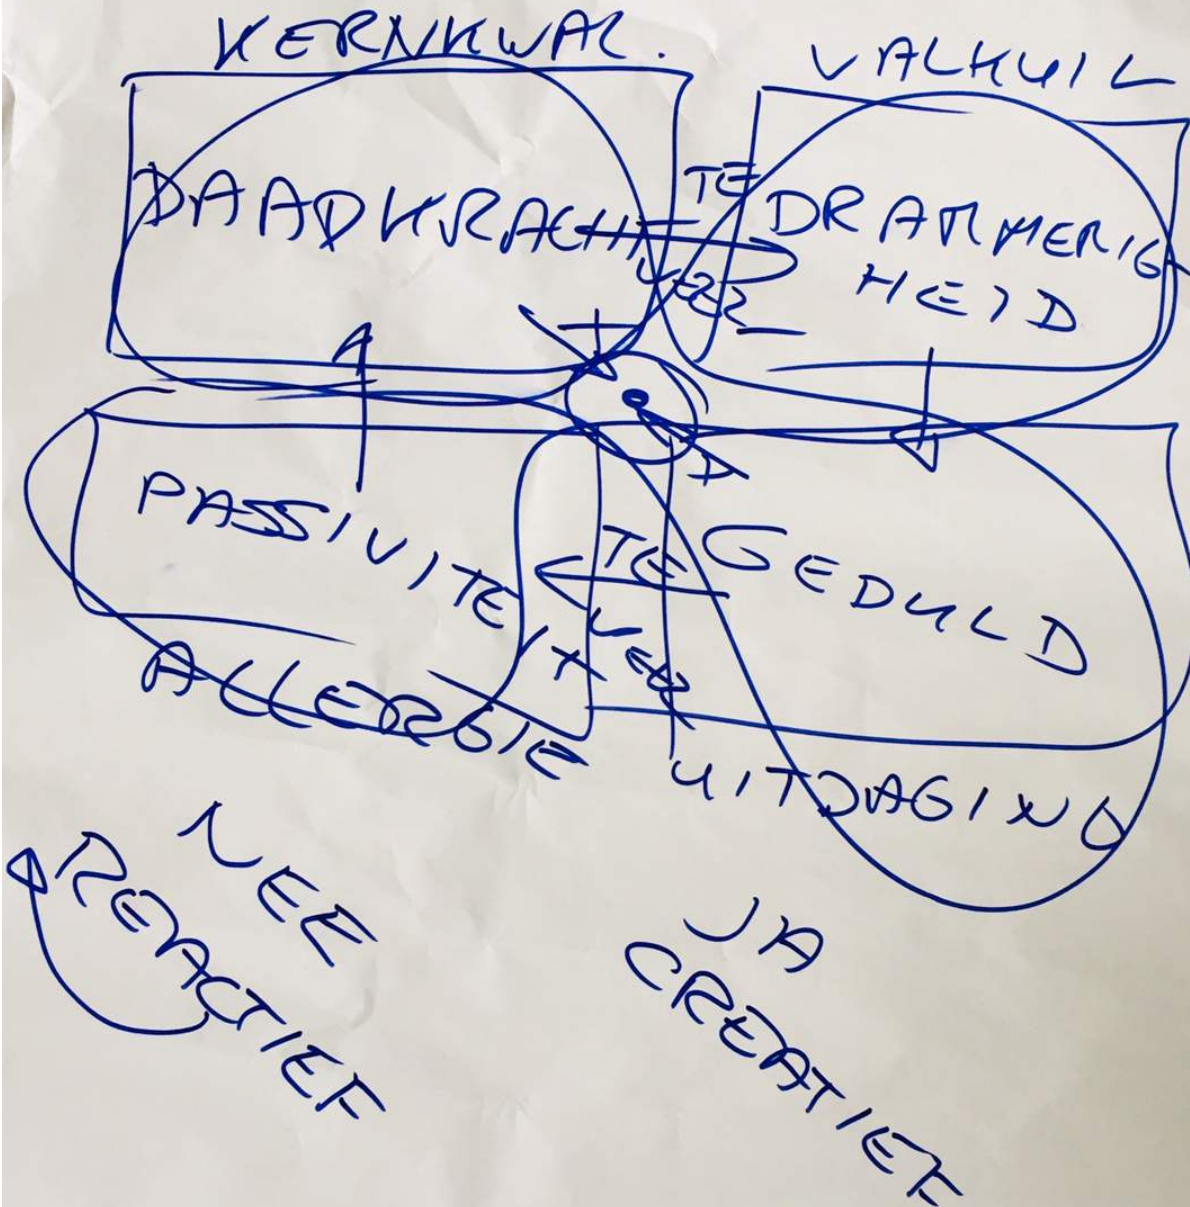 KERNKWAL.
VALKUIL
DAADKRACHT
TE
VEEL
DRAMMERIG
HEID
PASSIVITEIT
TE
VEEL
GEDULD
ALLERGIE
UITDAGING
NEE
REACTIEF
JA
CREATIEF